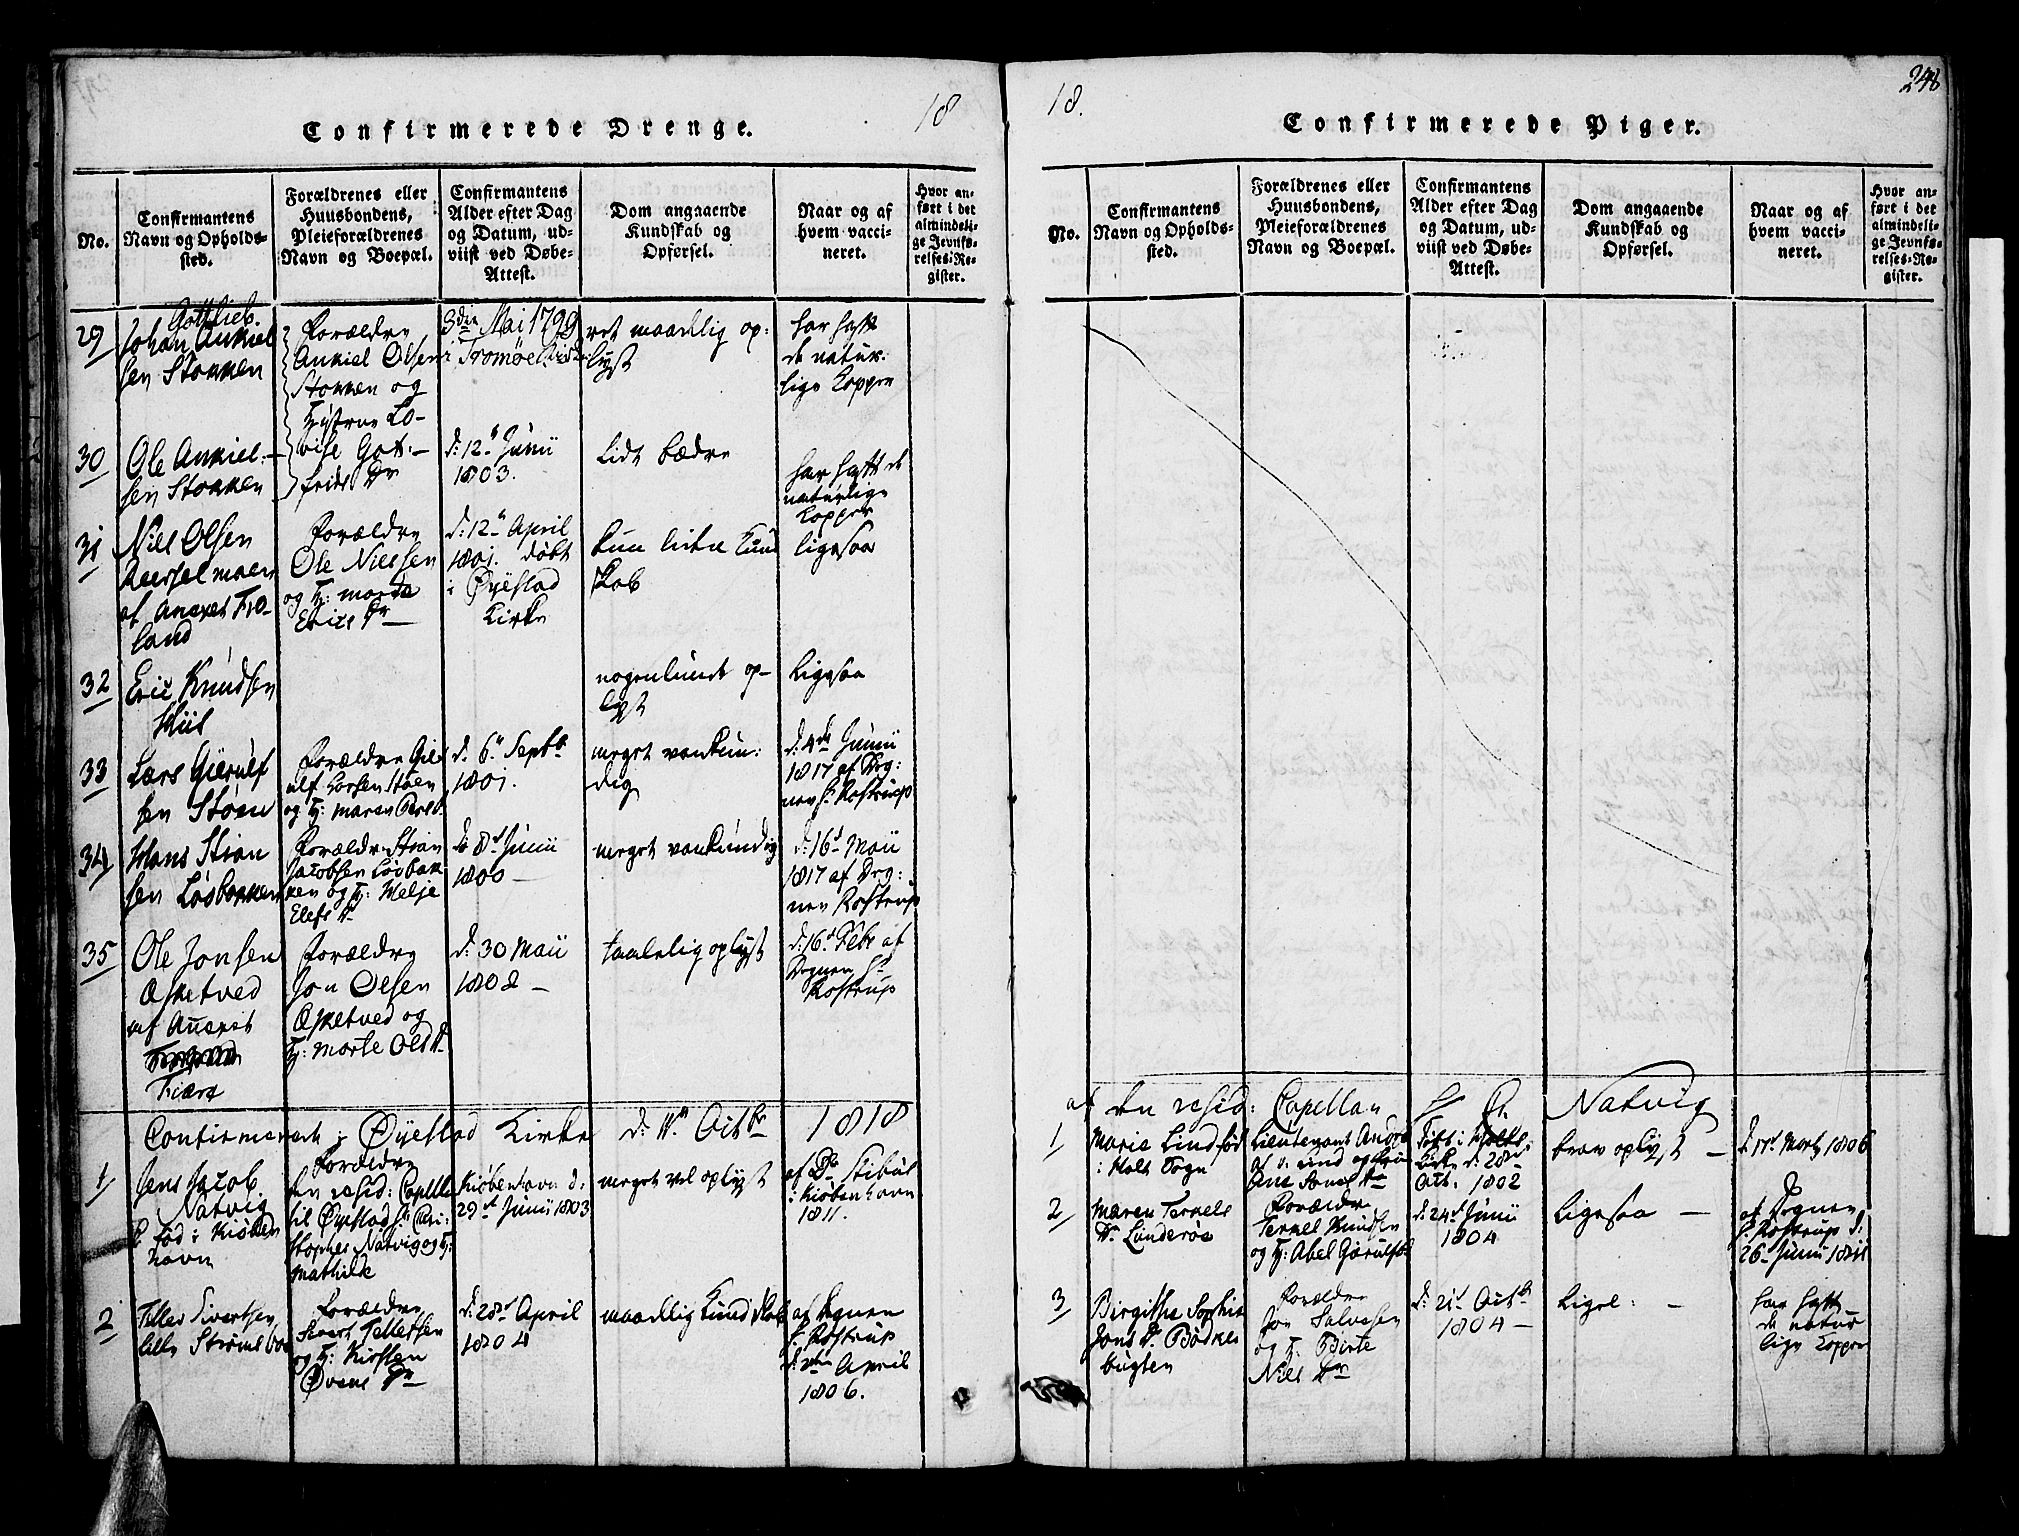 18
Confirmerede Drenge.
No.
Confirmantens
Navn og Opholds-
sted.
Forældrenes eller
Huusbondens,
Pleieforældrenes
Navn og Boepæl.
Confirmantens
Alder efter Dag
og Datum, ud-
viist ved Døbe-
Attest.
Dom angaaende
Kundskab og
Opførsel.
Naar og af
hvem vacci-
neret.
Hvor an-
ført i det
almindeli-
ge Jevnfø-
relses-Re-
gister.
29
Gottlieb
Johan Ankiel
sen Stokken
Forældre
Ankiel Olsen
Stokken og
Hustrue Lo-
vise Got-
frids Dr
3die Mai 1799
Tromøe
ret maadlig op-
lyst
har haft
de natur-
lige Kopper
30
Ole Ankiel-
sen Stokken
d: 12 Junii
1803.
Lidt bædre
har haft de
naturlige
Kopper
31
Niels Olsen
af Anexet Fro-
land
Forældre
Ole Nielsen
og H: Marte
Erics Dr
d: 12 April
1801. døbt
i Øyestad
Kirke
kun liden Kund
skab
ligesaa
32
Eric Knudsen
Huus
nogenlunde op-
lyst
ligesaa
33
Lars Gierulf
sen Støen
Forældre Gie
ulf Larsen Støen
og H: Maren
d. 6 Septbr
1801.
meget vankun-
dig
d: 4de Junii
1817 af Deg-
nen Hr Rostrup
34
Hans Stian
sen Løsbakken
Forældre Stian
Jacobsen Løsbak
ken og H: Melje
Elefs Dr
d. 8d Junii
1800
meget vankundig
d: 16d Maii
1817 af Deg-
nen Rostrup
35
Ole Jonsen
Æsketved
af Annexet
Fiære
Forældre
Jon Olsen
Æsketved og
H: Marte Ols Dr
d: 30 Maii
1802
taalelig oplyst
d: 16d Febr af
Degnen Hr
Rostrup
Confirmerede i Øyestad Kirke d: 11 Octbr 1818
1
Jens Jacob
Natvig
født i Kiøben
havn
Forældre
den resid: Capellan
til Øyestad Hr Chri-
stopher Natvig og H:
Mathilde
Kiøbenhavn d:
29d Junii 1803
meget vel oplyst
af Dr Stibul
i Kiøbenhavn
1811.
2
Tellef Sivertsen
lille Strømsboe
Forældre
Sivert Tellefsen
og H: Kirsten
Øvens Dr
d: 28d April
1804
maadlig Kundskab
af Degnen
Hr Rostrup
April
1806.
18.
248
Confirmerede Piger.
No.
Confirmantens
Navn og Opholds-
sted.
Forældrenes eller
Huusbondens,
Pleieforældrenes
Navn og Boepæl.
Confirmantens
Alder efter Dag
og Datum, ud-
viist ved Døbe-
Attest.
Dom angaaende
Kundskab og
Opførsel.
Naar og af
hvem vacci-
neret.
Hvor an-
ført i det
almindeli-
ge Jevnfø-
relses-Re-
gister.
af den resid: Capellan Hr C. Natvig
1
Marie Lind født
i Holt Sogn
Lieutenant
af v. Lind og Frue
Ane
født i Holts
Kirke d: 28d
Oct: 1802
brav oplyst
d. 17d Marts 1806
2
Maren Terkels
Dr Lunderøe
Forældre
Terkel Knudsen
og H: Abel
d: 24d Junii
1804
ligesaa
af Degnen
Hr Rostrup d:
26 Junii 1811
3
Birgithe Sophie
Jons Dr Bødker
bugten
Forældre
Jon Salvesen
og H: Birte
Niels Dr
d: 21d Octbr
1804
ligel:
har haft
de natur
lige Kopper